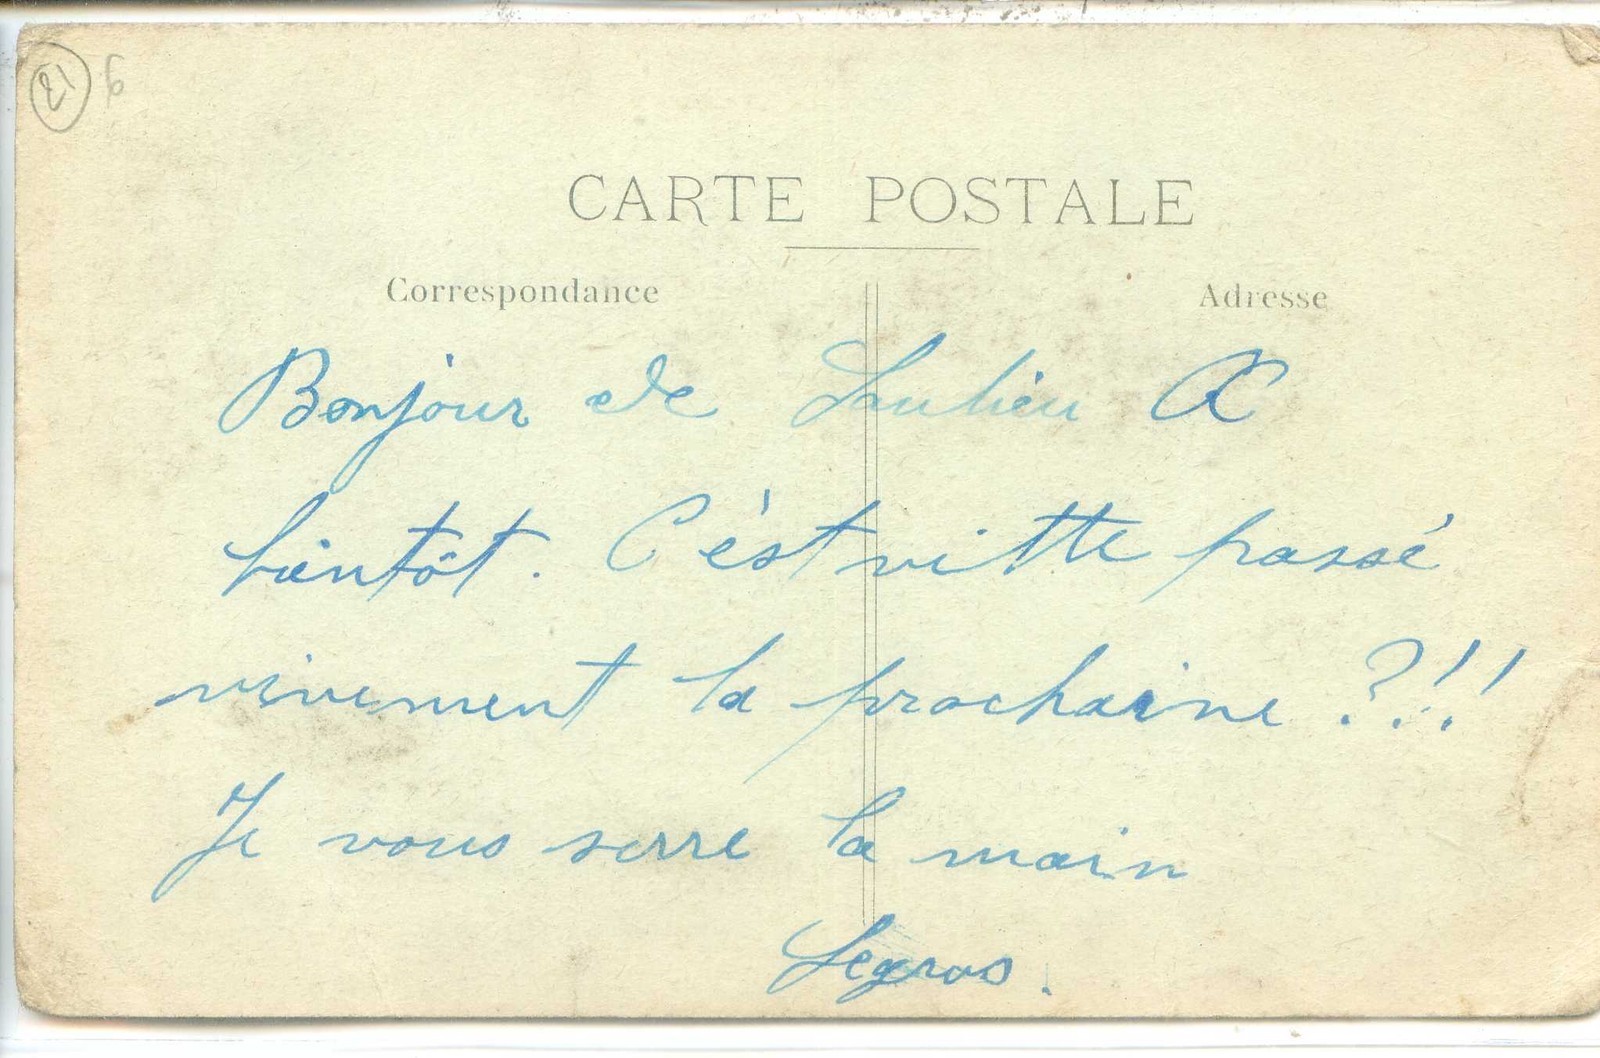 21 6
CARTE POSTALE
Correspondance
Adresse
Bonjour de Saulieu A
bientôt. C'est vitte passé
vivement la prochaine ?!!
Je vous serre la main
Legros.